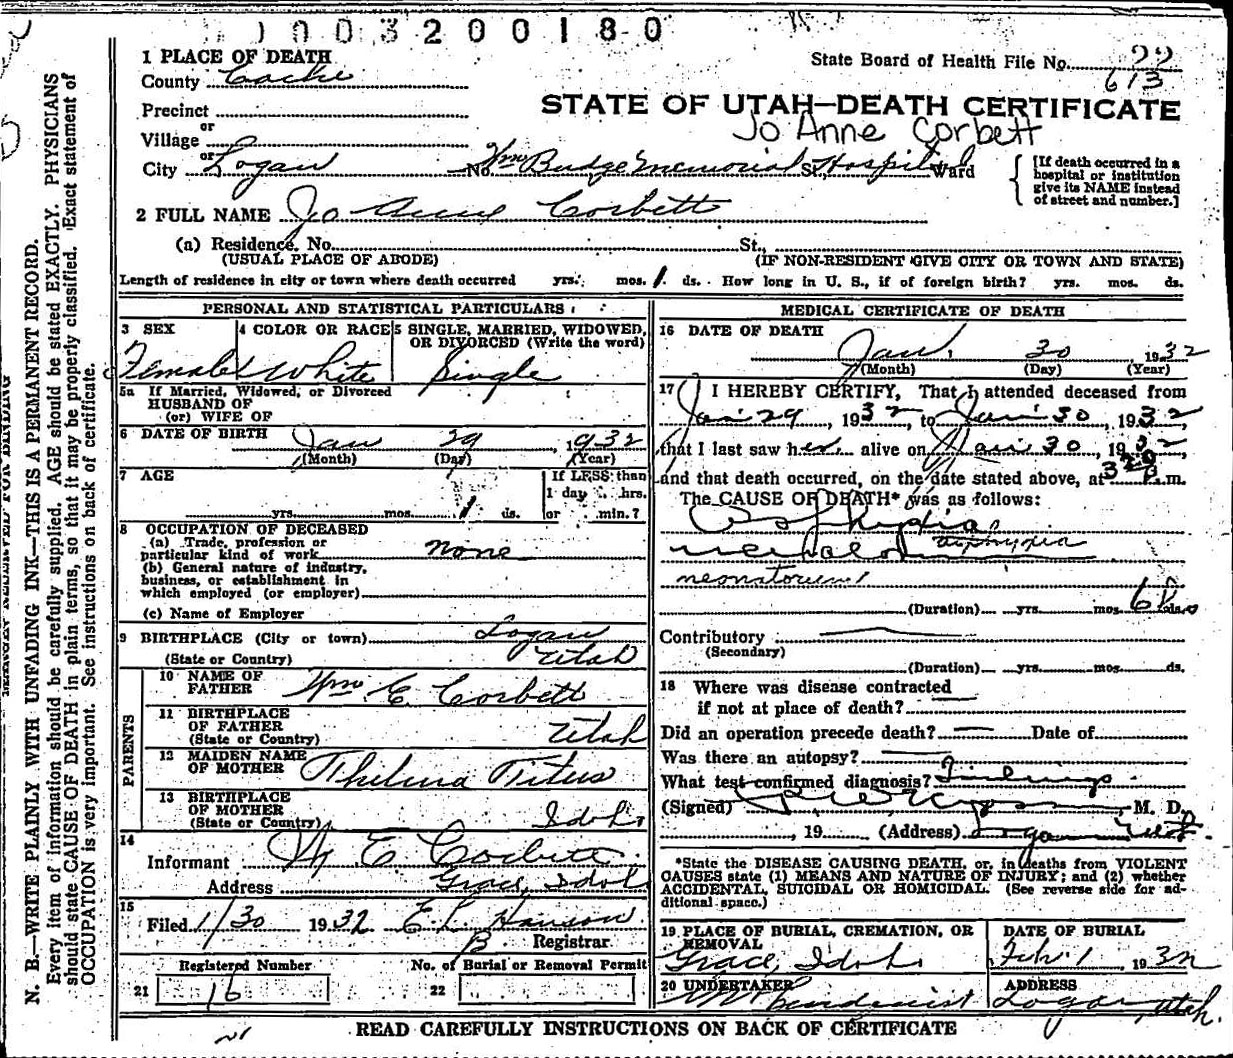 0003200180
1 PLACE OF DEATH
State Board of Health File No. 22
613
County Cache
STATE OF UTAH—DEATH CERTIFICATE
Precinct
Jo Anne Corbett
or
Village
or
City Logan No. Wm Budge Memorial Hospital St., Ward
[If death occurred in a
hospital or institution
give its NAME instead
of street and number.]
2 FULL NAME Jo Anne Corbett
(a) Residence, No. St.,
(USUAL PLACE OF ABODE) (IF NON-RESIDENT GIVE CITY OR TOWN AND STATE)
Length of residence in city or town where death occurred yrs. mos. 1 ds. How long in U. S., if of foreign birth? yrs. mos. ds.
PERSONAL AND STATISTICAL PARTICULARS
3 SEX 4 COLOR OR RACE 5 SINGLE, MARRIED, WIDOWED,
OR DIVORCED (Write the word)
Female White Single
5a If Married, Widowed, or Divorced
HUSBAND OF
(or) WIFE OF
6 DATE OF BIRTH Jan 29, 1932
(Month) (Day) (Year)
7 AGE If LESS than
1 day hrs.
yrs. mos. 1 ds. or min.?
8 OCCUPATION OF DECEASED
(a) Trade, profession or
particular kind of work none
(b) General nature of industry,
business, or establishment in
which employed (or employer)
(c) Name of Employer
9 BIRTHPLACE (City or town) Logan
(State or Country) Utah
PARENTS
10 NAME OF
FATHER Wm E. Corbett
11 BIRTHPLACE
OF FATHER
(State or Country) Utah
12 MAIDEN NAME
OF MOTHER Thelma Titus
13 BIRTHPLACE
OF MOTHER
(State or Country) Idaho
14
Informant W E Corbett
Address Grace, Idah
15
Filed 1/30 1932 E. L. Hanson
B Registrar
Registered Number No. of Burial or Removal Permit
21 16 22
MEDICAL CERTIFICATE OF DEATH
16 DATE OF DEATH
Jan. 30, 1932
(Month) (Day) (Year)
17 I HEREBY CERTIFY, That I attended deceased from
Jan 29, 1932, to Jan 30, 1932,
that I last saw her alive on Jan 30, 1932,
and that death occurred, on the date stated above, at 320 P.m.
The CAUSE OF DEATH* was as follows:
Asphyxia
asphyxia
neonatorum
(Duration) yrs. mos. ds.
Contributory
(Secondary)
(Duration) yrs. mos. ds.
18 Where was disease contracted
if not at place of death?
Did an operation precede death? Date of
Was there an autopsy?
What test confirmed diagnosis? Findings
(Signed) M. D.
, 19 (Address) Logan Utah
*State the DISEASE CAUSING DEATH, or, in deaths from VIOLENT
CAUSES state (1) MEANS AND NATURE OF INJURY; and (2) whether
ACCIDENTAL, SUICIDAL OR HOMICIDAL. (See reverse side for ad-
ditional space.)
19 PLACE OF BURIAL, CREMATION, OR
REMOVAL
Grace, Idaho
DATE OF BURIAL
Feb. 1, 1932
20 UNDERTAKER
ADDRESS
Logan, Utah.
READ CAREFULLY INSTRUCTIONS ON BACK OF CERTIFICATE
N. B.—WRITE PLAINLY WITH UNFADING INK—THIS IS A PERMANENT RECORD.
Every item of information should be carefully supplied. AGE should be stated EXACTLY. PHYSICIANS
should state CAUSE OF DEATH in plain terms, so that it may be properly classified. Exact statement of
OCCUPATION is very important. See instructions on back of certificate.